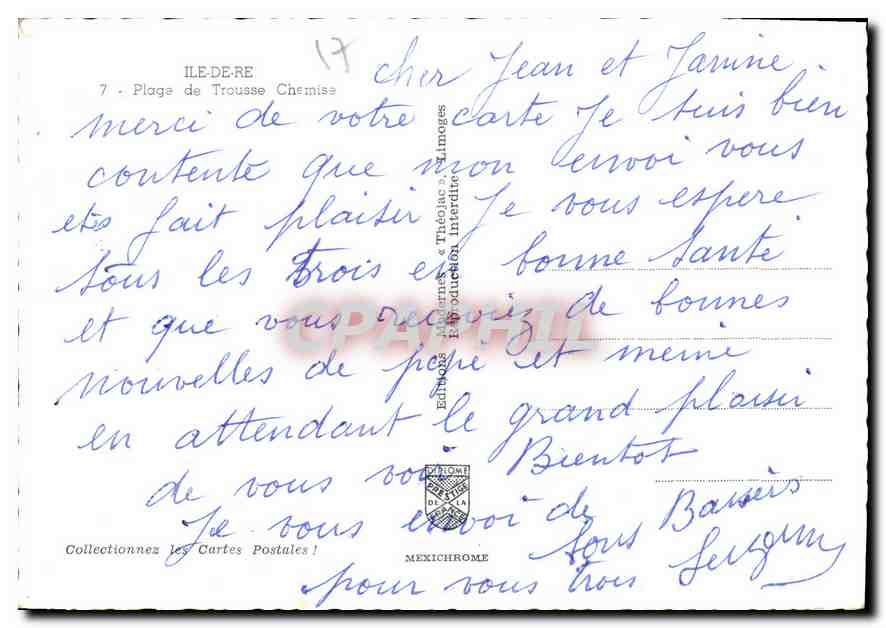 17
ILE-DE-RE
7 - Plage de Trousse Chemise
cher Jean et Janine
merci de votre carte Je suis bien
contente que mon envoi vous
etés fait plaisir Je vous espere
tous les trois en bonne santé
et que vous recoviez de bonnes
nouvelles de pépé et mémé
en attendant le grand plaisir
de vous voir Bientot
Je vous envoi de
tous Baisers
pour vous trois
Editions Modernes « Théojac », Limoges
Reproduction interdite
CPAPHIL
DIPLOME
PRESTIGE
DE LA
FRANCE
Collectionnez les Cartes Postales !
MEXICHROME